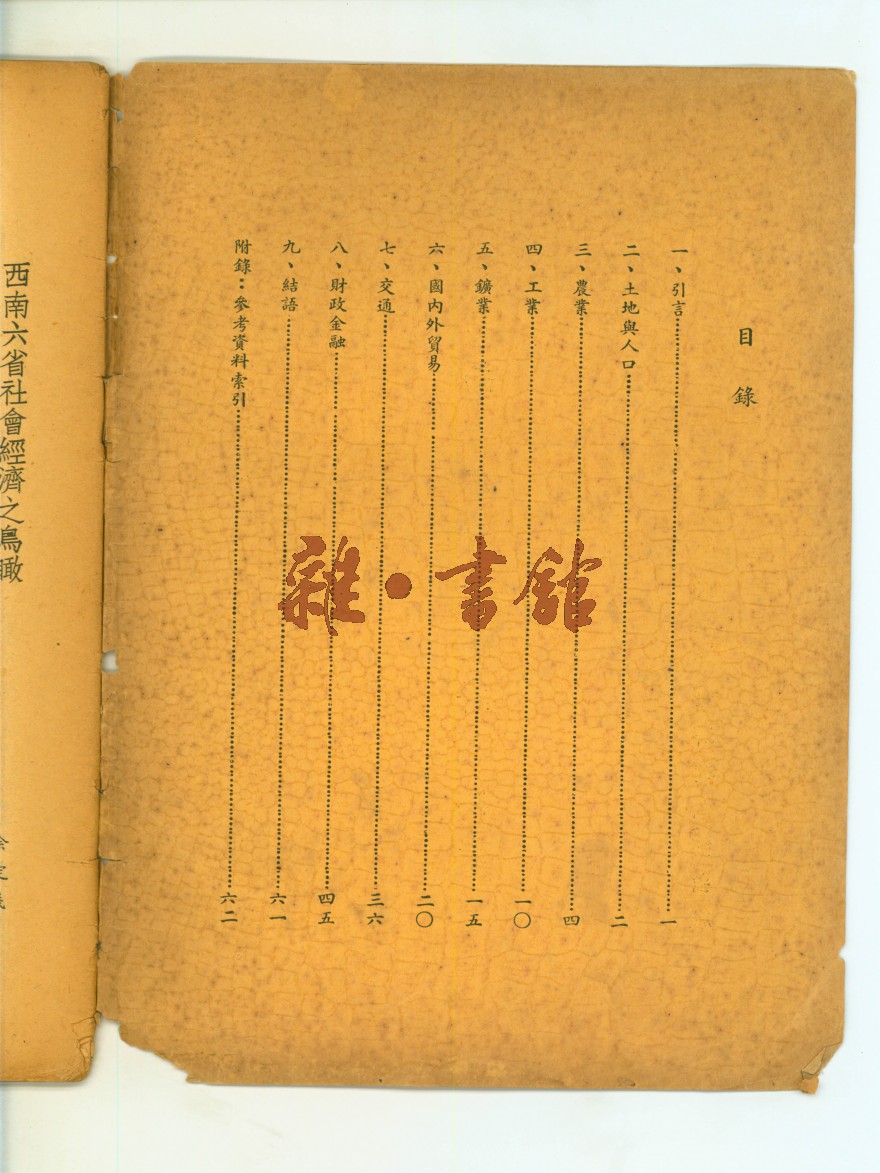 目錄
一、引言……一
二、土地與人口……二
三、農業……四
四、工業……一〇
五、鑛業……一五
六、國內外貿易……二〇
七、交通……三六
八、財政金融……四五
九、結語……六一
附錄：參考資料索引……六二
西南六省社會經濟之鳥瞰
雜·書館